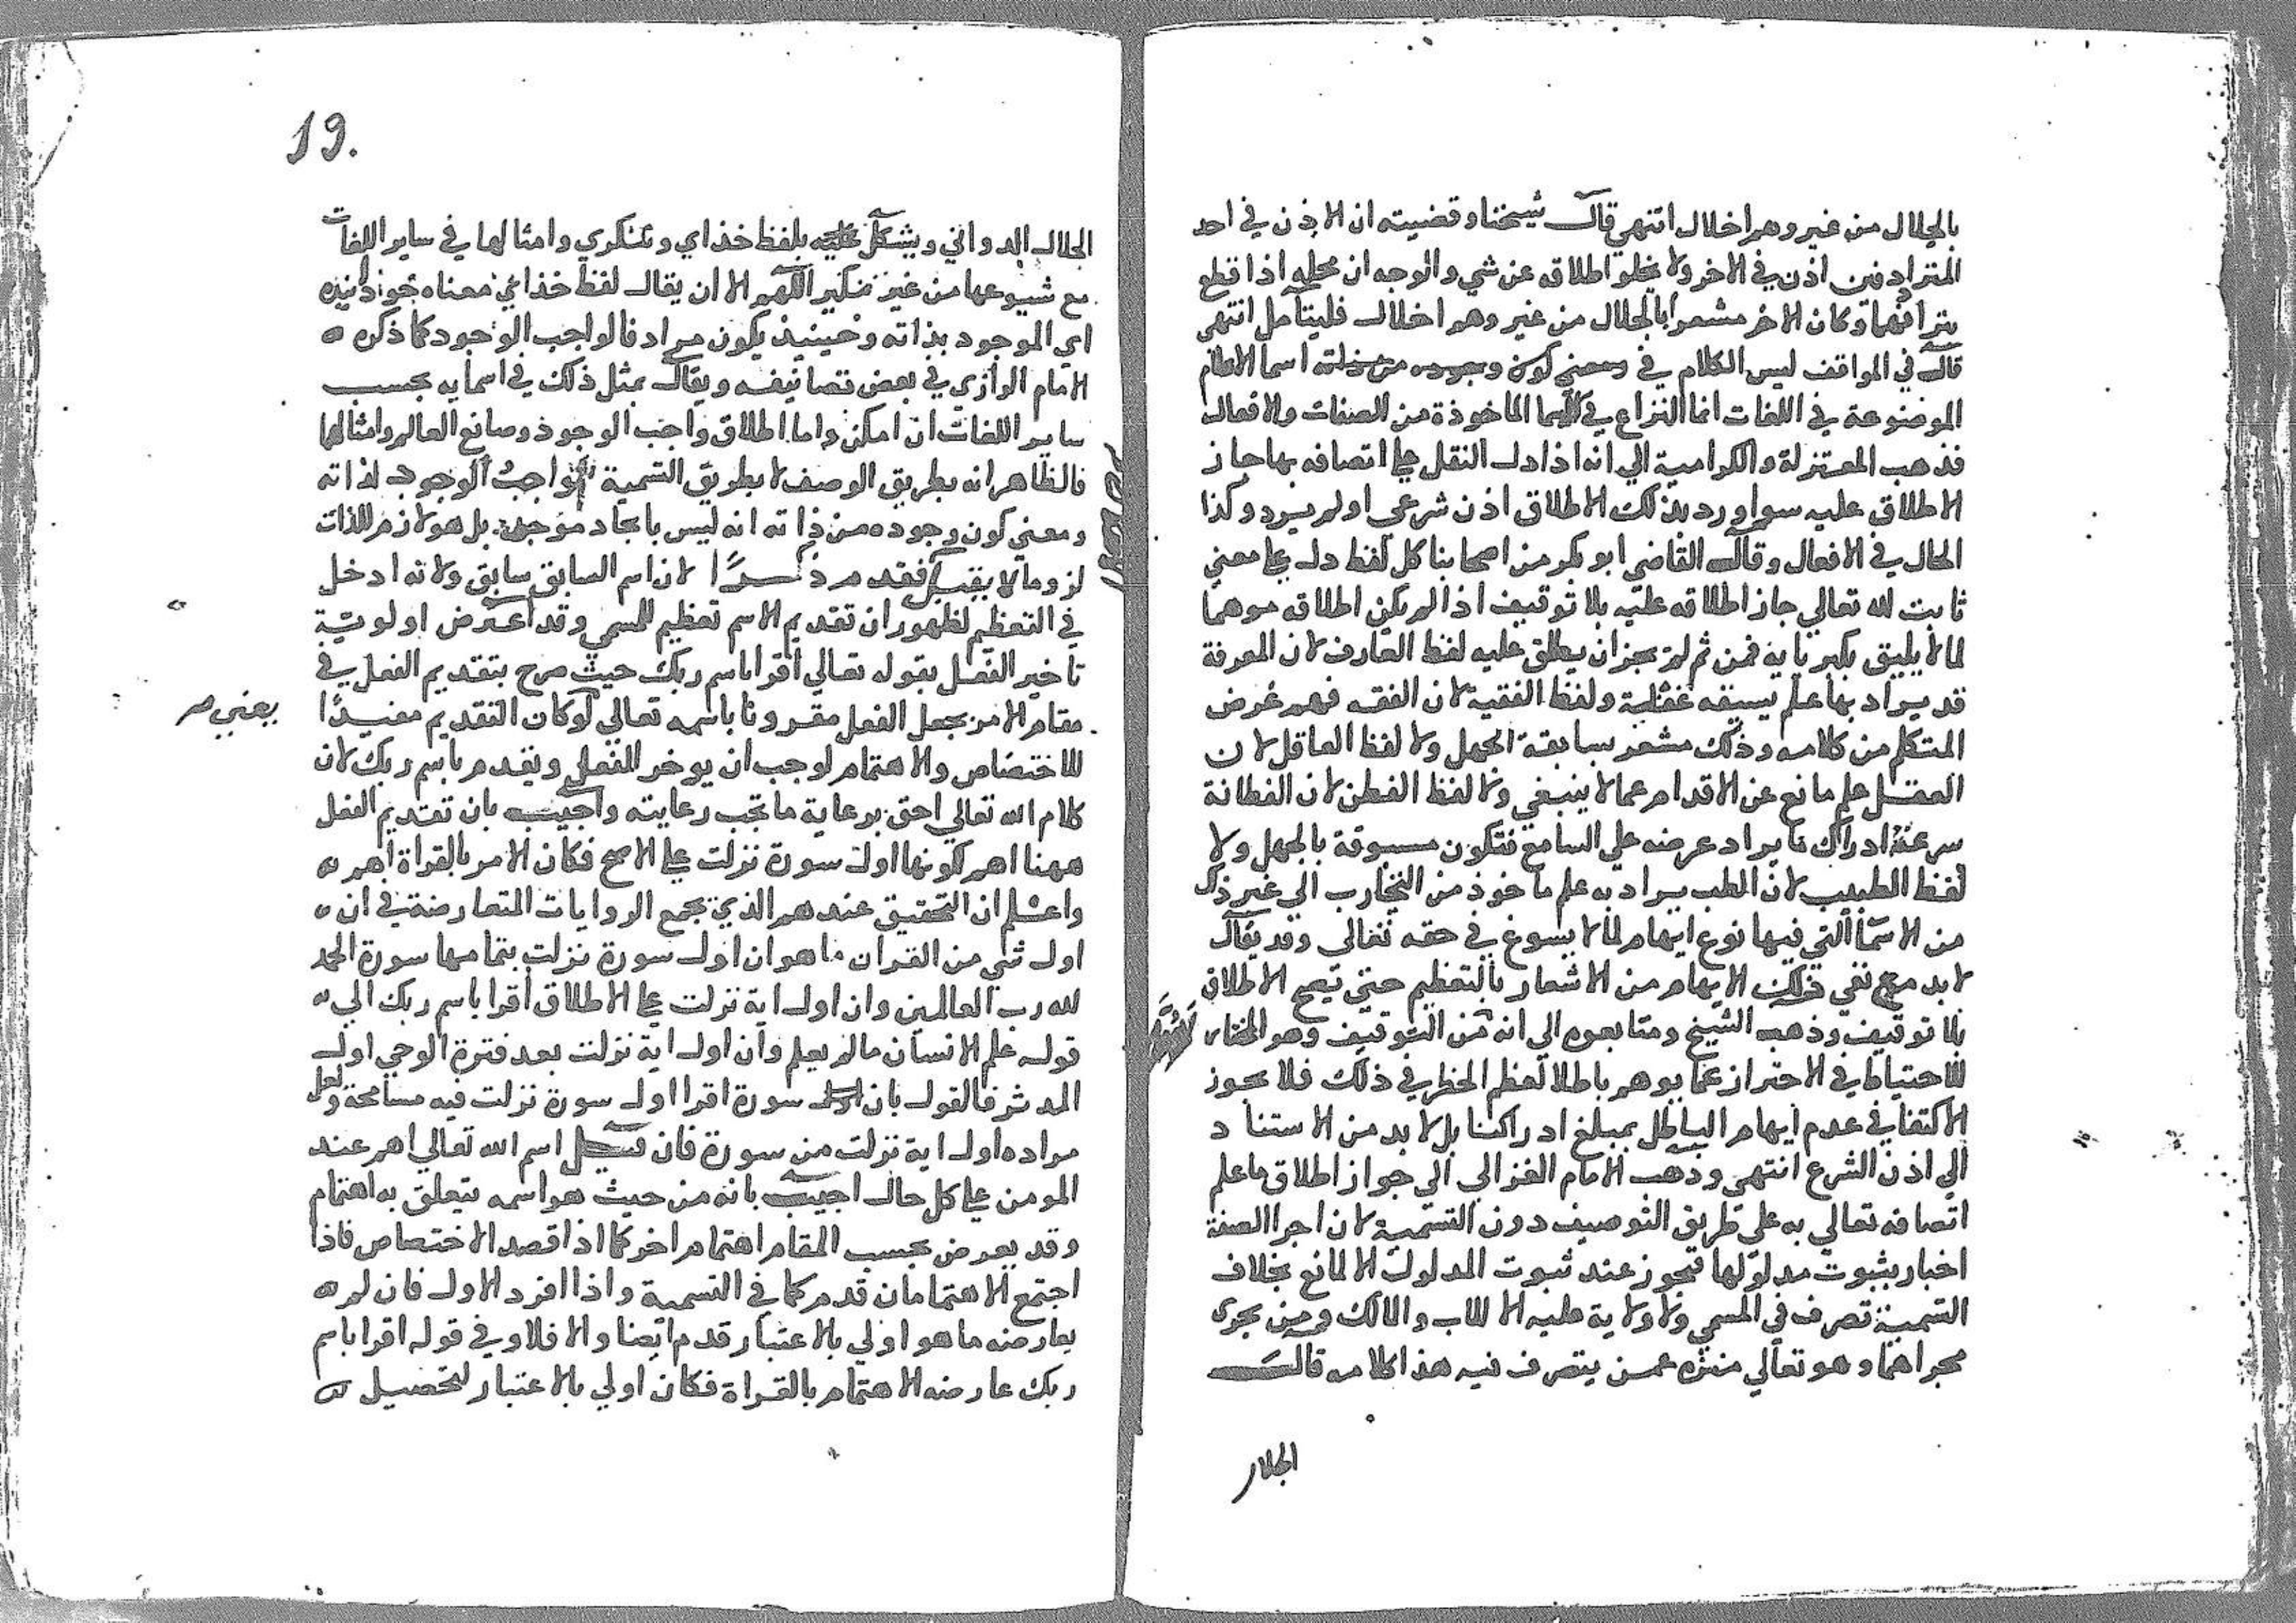 بالجلال من غير وهم اخلال انتهي قال شيخنا وقضيته ان الاذن في احد
المترادفين اذن في الاخر ولا يخلو اطلاقه عن شي والوجه ان محله اذا قطع
بترادفهما وكان الاخر مشعرا بالجلال من غير وهم اخلال فليتامل انتهي
قال في المواقف ليس الكلام في اسما الاعلام
الموضوعة في اللغات انما النزاع في الاسما الماخوذة من الصفات والافعال
فذهب المعتزلة والكرامية الي انه اذا دل النقل علي اتصافه بها جاز
الاطلاق عليه سوا ورد بذلك الاطلاق اذن شرعي اولم يرد وكذا
الحال في الافعال وقال القاضي ابو بكر من اصحابنا كل لفظ دل علي معني
ثابت لله تعالي جاز اطلاقه عليه بلا توقيف اذا لم يكن اطلاقه موهما
لما لا يليق بكبريايه فمن ثم لم يجز ان يطلق عليه لفظ العارف لان المعرفة
قد يراد بها علم يسبقه غفلة ولفظ الفقيه لان الفقه فهم غرض
المتكلم من كلامه وذلك مشعر بسابقة الجهل ولا لفظ العاقل لان
العقل علم مانع عن الاقدام عما لا ينبغي ولا لفظ الفطن لان الفطانة
سرعة ادراك ما يراد عرضه علي السامع فتكون مسبوقة بالجهل ولا
لفظ الطبيب لان الطب يراد به علم ماخوذ من التجارب الي غير ذلك
من الاسما التي فيها نوع ايهام لما لا يسوغ في حقه تعالي وقد يقال
لا بد مع نفي ذلك الايهام من الاشعار بالتعظيم حتي تصح الاطلاق
بلا توقيف وذهب الشيخ ومتابعوه الي انه من التوقيف وهو المختار
للاحتياط في الاحتراز عما يوهم باطلا لعظم الخطر في ذلك فلا يجوز
الاكتفا في عدم ايهام الباطل بمبلغ ادراكنا بل لا بد من الاستناد
الي اذن الشرع انتهي وذهب الامام الغزالي الي جواز اطلاق ما علم
اتصافه تعالي به علي طريق التوصيف دون التسمية لان اجرا الصفة
اخبار بثبوت مدلولها فتجوز عند ثبوت المدلول الا لمانع بخلاف
التسمية تصرف في المسمي ولا ولاية عليه الا للاب والمالك ومن يجري
مجراهما وهو تعالي منزه عمن يتصرف فيه هذا كلامه قال
الجلال
19.
الجلال الدواني ويشكل عليه بلفظ خداي وتنكري وامثالها في ساير اللغات
مع شيوعها من غير نكير اللهم الا ان يقال لفظ خداي معناه
اي الموجود بذاته وحينيذ يكون مرادفا لواجب الوجود كما ذكره
الامام الرازي في بعض تصانيفه ويقال بمثل ذلك في اسمايه بحسب
ساير اللغات ان امكن واما اطلاق واجب الوجود وصانع العالم وامثالها
فالظاهر انه بطريق الوصف لا بطريق التسمية واجب الوجود لذاته
ومعني كون وجوده من ذاته انه ليس بايجاد موجد بل هو لازم للذات
لزوما لا يقبل فقد مر ذكرا لان اسم السابق سابق ولانه ادخل
في التعظيم لظهور ان تقديم الاسم تعظيم للمسمي وقد اعترض اولوية
تاخير الفعل بقوله تعالي اقرا باسم ربك حيث صرح بتقديم الفعل في
مقام الامر بجعل الفعل مقرونا باسمه تعالي لو كان التقديم مفيدا
يعني صر
للاختصاص والاهتمام لوجب ان يوخر الفعل ويقدم باسم ربك لان
كلام الله تعالي احق برعاية ما تجب رعايته واجيب بان تقديم الفعل
ههنا اهم لكونها اول سورة نزلت علي الاصح فكان الامر بالقراة اهم
واعلم ان التحقيق عندهم الذي تجمع الروايات المتعارضة في ان
اول شي من القران ما هو ان اول سورة نزلت بتمامها سورة الحمد
لله رب العالمين وان اول اية نزلت علي الاطلاق اقرا باسم ربك الي
قوله علم الانسان ما لم يعلم وان اول اية نزلت بعد فترة الوحي اول
المدثر فالقول بان سورة اقرا اول سورة نزلت فيه مسامحة ولعل
مراده اول اية نزلت من سورة فان قيل اسم الله تعالي اهم عند
المومن علي كل حال اجيب بانه من حيث هو اسمه يتعلق به اهتمام
وقد يعرض بحسب المقام اهتمام اخر كما اذا قصد الاختصاص فاذا
اجتمع الاهتمامان قدم كما في التسمية واذا افرد الاول فان لم
يعارضه ما هو اولي بالاعتبار قدم ايضا والا فلا وفي قوله اقرا باسم
ربك عارضه الاهتمام بالقراة فكان اولي بالاعتبار لتحصيل